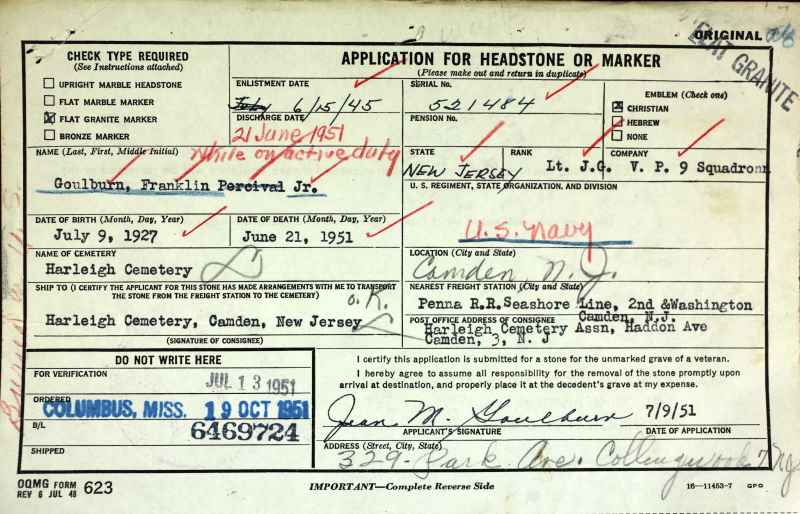 ORIGINAL
FLAT GRANITE
CHECK TYPE REQUIRED
(See Instructions attached)
UPRIGHT MARBLE HEADSTONE
FLAT MARBLE MARKER
FLAT GRANITE MARKER
BRONZE MARKER
APPLICATION FOR HEADSTONE OR MARKER
(Please make out and return in duplicate)
ENLISTMENT DATE
6/15/45
DISCHARGE DATE
21 June 1951
While on active duty
SERIAL No.
521484
PENSION No.
EMBLEM (Check one)
CHRISTIAN
HEBREW
NONE
NAME (Last, First, Middle Initial)
Goulburn, Franklin Percival Jr.
STATE
NEW JERSEY
RANK
Lt. J.G.
COMPANY
V. P. 9 Squadron
U. S. REGIMENT, STATE ORGANIZATION, AND DIVISION
U.S. Navy
DATE OF BIRTH (Month, Day, Year)
July 9, 1927
DATE OF DEATH (Month, Day, Year)
June 21, 1951
NAME OF CEMETERY
Harleigh Cemetery
LOCATION (City and State)
Camden N. J.
SHIP TO (I CERTIFY THE APPLICANT FOR THIS STONE HAS MADE ARRANGEMENTS WITH ME TO TRANSPORT
THE STONE FROM THE FREIGHT STATION TO THE CEMETERY)
O.K.
Harleigh Cemetery, Camden, New Jersey
(SIGNATURE OF CONSIGNEE)
NEAREST FREIGHT STATION (City and State)
Penna R.R. Seashore Line, 2nd & Washington
Camden, N.J.
POST OFFICE ADDRESS OF CONSIGNEE
Harleigh Cemetery Assn, Haddon Ave
Camden, 3, N. J
DO NOT WRITE HERE
FOR VERIFICATION
JUL 13 1951
ORDERED
COLUMBUS, MISS. 19 OCT 1951
B/L
6469724
SHIPPED
I certify this application is submitted for a stone for the unmarked grave of a veteran.
I hereby agree to assume all responsibility for the removal of the stone promptly upon
arrival at destination, and properly place it at the decedent's grave at my expense.
Jean M. Goulburn
7/9/51
APPLICANT'S SIGNATURE
DATE OF APPLICATION
ADDRESS (Street, City, State)
329 - Park Ave. Collingswood 7 NJ
OQMG FORM
REV 6 JUL 48
623
IMPORTANT—Complete Reverse Side
16—11453-7 GPO